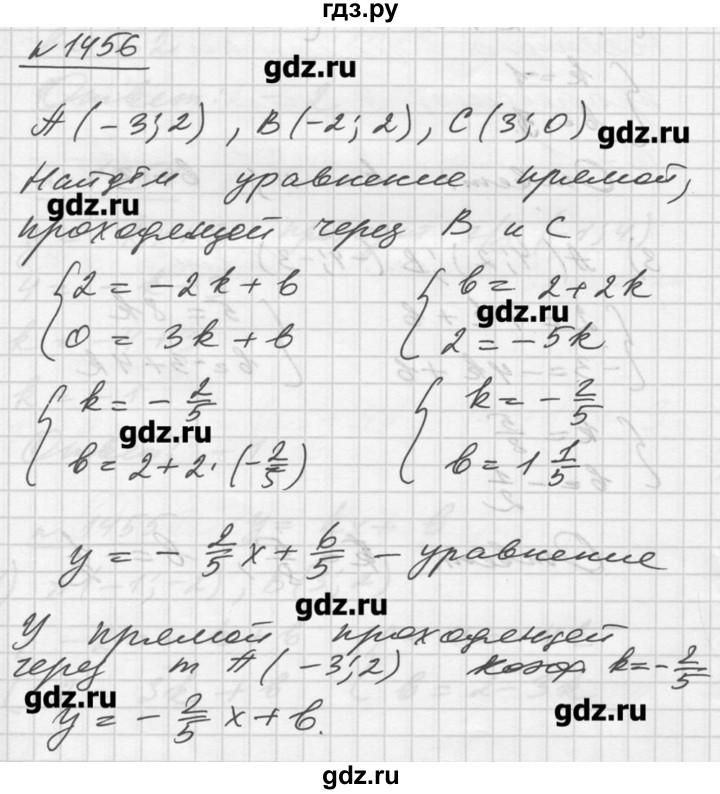 гдз.ру
№1456
gdz.ru
A(-3; 2), B(-2; 2), C(3; 0)
gdz.ru
Найдём уравнение прямой,
gdz.ru
проходящей через B и C
{2 = -2k + b {b = 2 + 2k
gdz.ru
{0 = 3k + b {2 = -5k
{k = -2/5 {k = -2/5
gdz.ru
{b = 2 + 2·(-2/5) {b = 1 1/5
y = -2/5 x + 6/5 - уравнение
gdz.ru
У прямой проходящей
через т A(-3; 2) коэф k = -2/5
gdz.ru
y = -2/5 x + b.
gdz.ru
gdz.ru